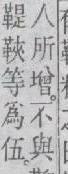 人所增。不與
鞮䩡等為伍。